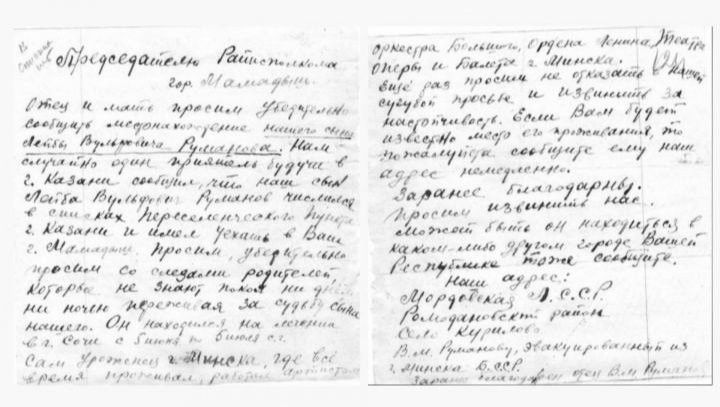 Председателю Райисполкома
гор. Мамадыш.
Отец и мать просим убедительно
сообщить местонахождение нашего сына
Лейбы Вульфовича Руманова. Нам
случайно один приятель будучи в
г. Казани сообщил, что наш сын
Лейба Вульфович Руманов числился
в списках Переселенческого Пункта
г. Казани и имел уехать в Ваш
г. Мамадыш. Просим, убедительно
просим со слезами родителей
которые не знают покоя ни днем
ни ночью переживая за судьбу сына
нашего. Он находился на лечении
в г. Сочи с 6 июня по
Сам уроженец г. Минска, где всё
время проживал, работал артистом
оркестра Большого, Ордена Ленина, Театра
Оперы и Балета г. Минска.
Ещё раз просим не отказать в нашей
сугубой просьбе и извинить за
настойчивость. Если Вам будет
известно место его проживания, то
пожалуйста сообщите ему наш
адрес немедленно.
Заранее благодарны.
Просим извинить нас.
Может быть он находиться в
каком-либо другом городе Вашей
Республике тоже сообщите.
Наш адрес:
Мордовская А.С.С.Р.
Ромодановский район
Село Курилово
В.М. Руманову, эвакуированный из
г. Минска Б.С.С.Р.
Заранее благодарен отец В.М. Руманов